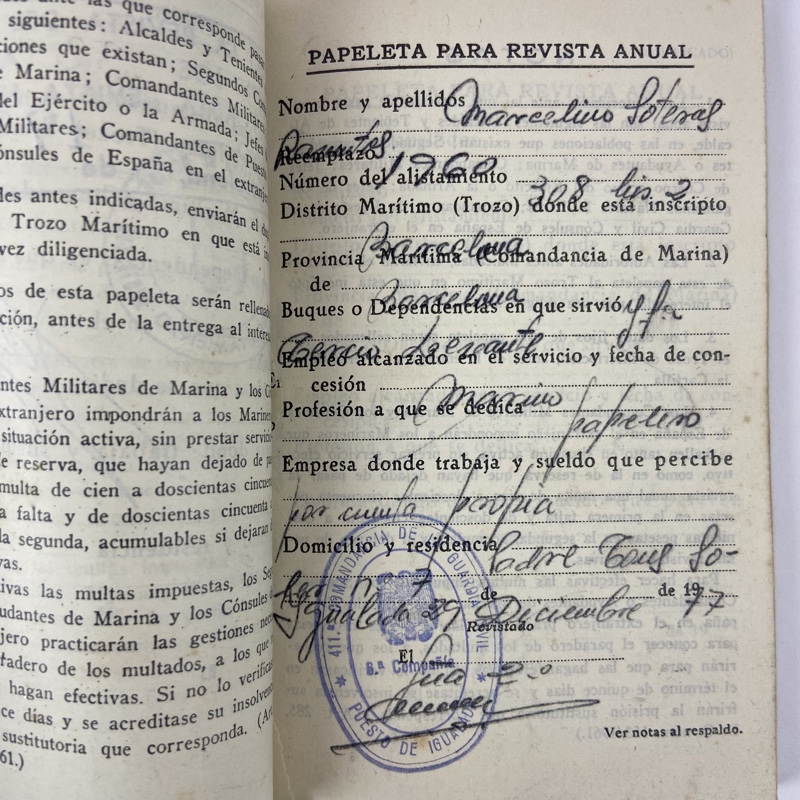 ante las que corresponde pasar
siguientes: Alcaldes y Tenientes
ciones que existan; Segundos Com
e Marina; Comandantes Militares
del Ejército o la Armada; Jefes
Militares; Comandantes de Puesto
ónsules de España en el extranjero
des antes indicadas, enviarán el
Trozo Marítimo en que está
vez diligenciada.
os de esta papeleta serán rellenados
ción, antes de la entrega al interes
ntes Militares de Marina y los
extranjero impondrán a los Marineros
situación activa, sin prestar servicio
e reserva, que hayan dejado de
multa de cien a doscientas cincuenta
a falta y de doscientas cincuenta
la segunda, acumulables si dejaran
vas.
tivas las multas impuestas, los
udantes de Marina y los Cónsules
jero practicarán las gestiones
tadero de los multados, a los que
hagan efectivas. Si no lo verifica
ce días y se acreditase su insolven
sustitutoria que corresponda. (Ar
61.)
PAPELETA PARA REVISTA ANUAL
Nombre y apellidos Marcelino Soteras
Reemplazo 1960
Número del alistamiento 308 bis 2
Distrito Marítimo (Trozo) donde está inscripto
Barcelona
Provincia Marítima (Comandancia de Marina)
de Barcelona
Buques o Dependencias en que sirvió
Tercio Levante
Empleo alcanzado en el servicio y fecha de con-
cesión Marino
Profesión a que se dedica papelero
Empresa donde trabaja y sueldo que percibe
por cuenta propia
Domicilio y residencia Padre Tous So-
ler n. 7 de de 19
Igualada 29 Diciembre 77
Revistado
El
411.ª COMANDANCIA DE LA GUARDIA CIVIL
6.ª Compañía
PUESTO DE IGUALADA
Ver notas al respaldo.